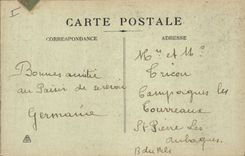 I
CARTE POSTALE
CORRESPONDANCE
ADRESSE
Bonne amitié
au Plaisir de revoir
Germaine
Mr et Me
Tricon
Campagnes les
Tourreaux
St Pierre Les
Aubagnes
B du Rh